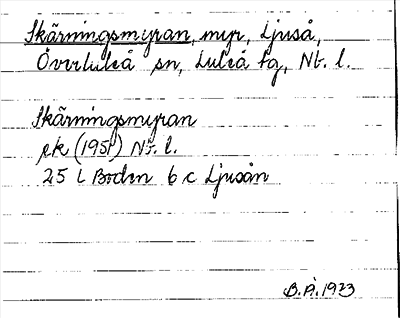 Skärningsmyran, myr, Ljuså,
Överluleå sn, Luleå tg, Nb. l.
Skärningsmyran
ek (1951) Nb. l.
25 L Boden 6 c Ljusån
B.Å. 1973